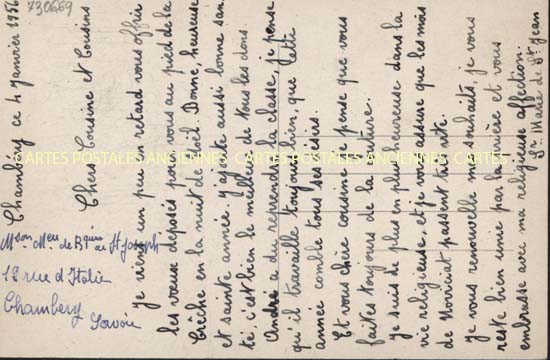 Chambéry ce 4 janvier 1956
730669
Chers Cousine et Cousins
Je viens un peu en retard vous offrir
les vœux déposés pour vous au pied de la
Crèche en la nuit de Noël. Bonne, heureuse
et sainte année j'ajoute aussi bonne san
té, c'est bien le meilleur de tous les dons.
André a du reprendre la classe, je pense
qu'il travaille toujours bien, que cette
année comble tous ses désirs.
Et vous chère cousine je pense que vous
faites toujours de la couture.
Je suis de plus en plus heureuse dans la
vie religieuse, et je vous assure que les mois
de Noviciat passent très vite.
Je vous renouvelle mes souhaits, je vous
reste bien unie par la prière et vous
embrasse avec ma religieuse affection.
Sr Marie de St Jean
Mson Mère de St Joseph
12 rue d'Italie
Chambéry
Savoie
CARTES POSTALES ANCIENNES CARTES POSTALES ANCIENNES CARTES POSTALES ANCIENNES